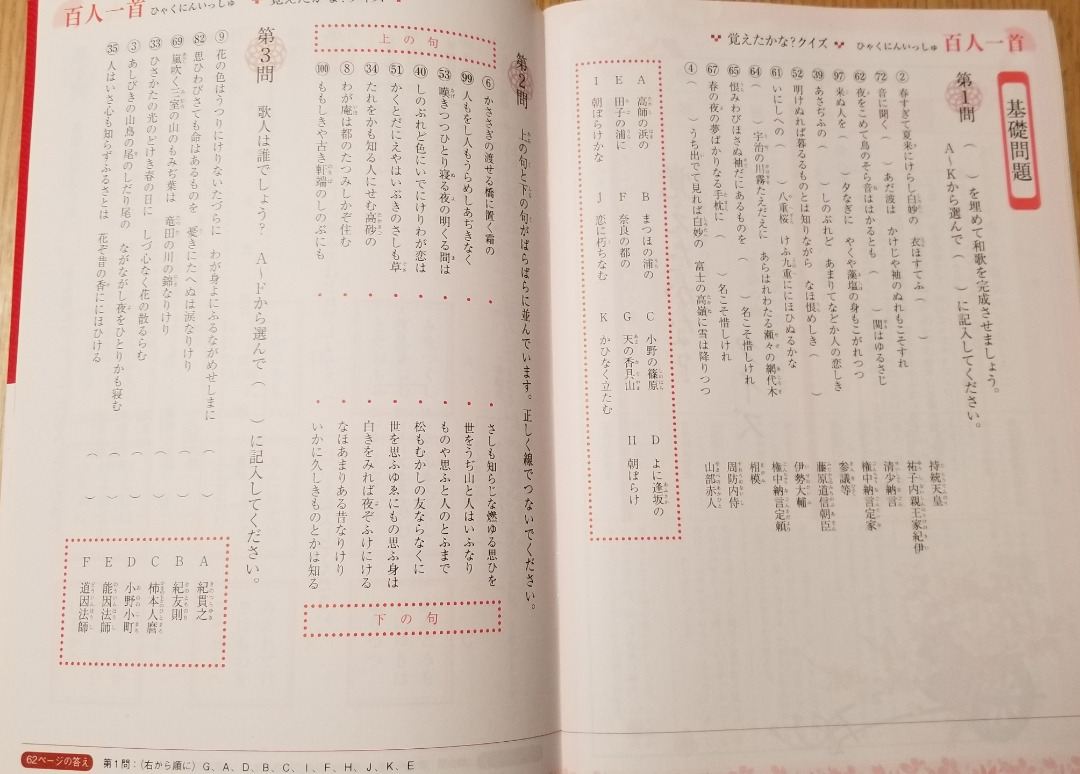 百人一首 ひゃくにんいっしゅ 覚えたかな?クイズ
基礎問題
第1問 ( )を埋めて和歌を完成させましょう。
A〜Kから選んで( )に記入してください。
② 春すぎて夏来にけらし白妙の 衣ほすてふ( ) 持統天皇
72 音に聞く( )あだ波は かけじや袖のぬれもこそすれ 祐子内親王家紀伊
62 夜をこめて鳥のそら音ははかるとも ( )関はゆるさじ 清少納言
97 来ぬ人を( )夕なぎに やくや藻塩の身もこがれつつ 権中納言定家
39 あさぢふの( )しのぶれど あまりてなどか人の恋しき 参議等
52 明けぬれば暮るるものとは知りながら なほ恨めしき( ) 藤原道信朝臣
61 いにしへの( )八重桜 けふ九重ににほひぬるかな 伊勢大輔
64 ( )宇治の川霧たえだえに あらはれわたる瀬々の網代木 権中納言定頼
65 恨みわびほさぬ袖だにあるものを ( )名こそ惜しけれ 相模
67 春の夜の夢ばかりなる手枕に ( )名こそ惜しけれ 周防内侍
④ ( )うち出でて見れば白妙の 富士の高嶺に雪は降りつつ 山部赤人
A 高師の浜の B まつほの浦の C 小野の篠原 D よに逢坂の
E 田子の浦に F 奈良の都の G 天の香具山 H 朝ぼらけ
I 朝ぼらけかな J 恋に朽ちなむ K かひなく立たむ
百人一首 ひゃくにんいっしゅ 覚えたかな?クイズ
第2問 上の句と下の句がばらばらに並んでいます。正しく線でつないでください。
上の句
⑥ かささぎの渡せる橋に置く霜の ・ ・ さしも知らじな燃ゆる思ひを
99 人もをし人もうらめしあぢきなく ・ ・ 世をうぢ山と人はいふなり
53 嘆きつつひとり寝る夜の明くる間は ・ ・ ものや思ふと人のとふまで
40 しのぶれど色にいでにけりわが恋は ・ ・ 松もむかしの友ならなくに
51 かくとだにえやはいぶきのさしも草 ・ ・ 世を思ふゆゑにもの思ふ身は
34 たれをかも知る人にせむ高砂の ・ ・ 白きをみれば夜ぞふけにける
⑧ わが庵は都のたつみしかぞ住む ・ ・ なほあまりある昔なりけり
100 ももしきや古き軒端のしのぶにも ・ ・ いかに久しきものとかは知る
下の句
第3問 歌人は誰でしょう? A〜Fから選んで( )に記入してください。
⑨ 花の色はうつりにけりないたづらに わが身よにふるながめせしまに ( )
82 思ひわびさても命はあるものを 憂きにたへぬは涙なりけり ( )
69 嵐吹く三室の山のもみぢ葉は 竜田の川の錦なりけり ( )
33 ひさかたの光のどけき春の日に しづ心なく花の散るらむ ( )
③ あしびきの山鳥の尾のしだり尾の ながながし夜をひとりかも寝む ( )
35 人はいさ心も知らずふるさとは 花ぞ昔の香ににほひける ( )
A 紀貫之
B 紀友則
C 柿本人麿
D 小野小町
E 能因法師
F 道因法師
62ページの答え 第1問:(右から順に)G、A、D、B、C、I、F、H、J、K、E